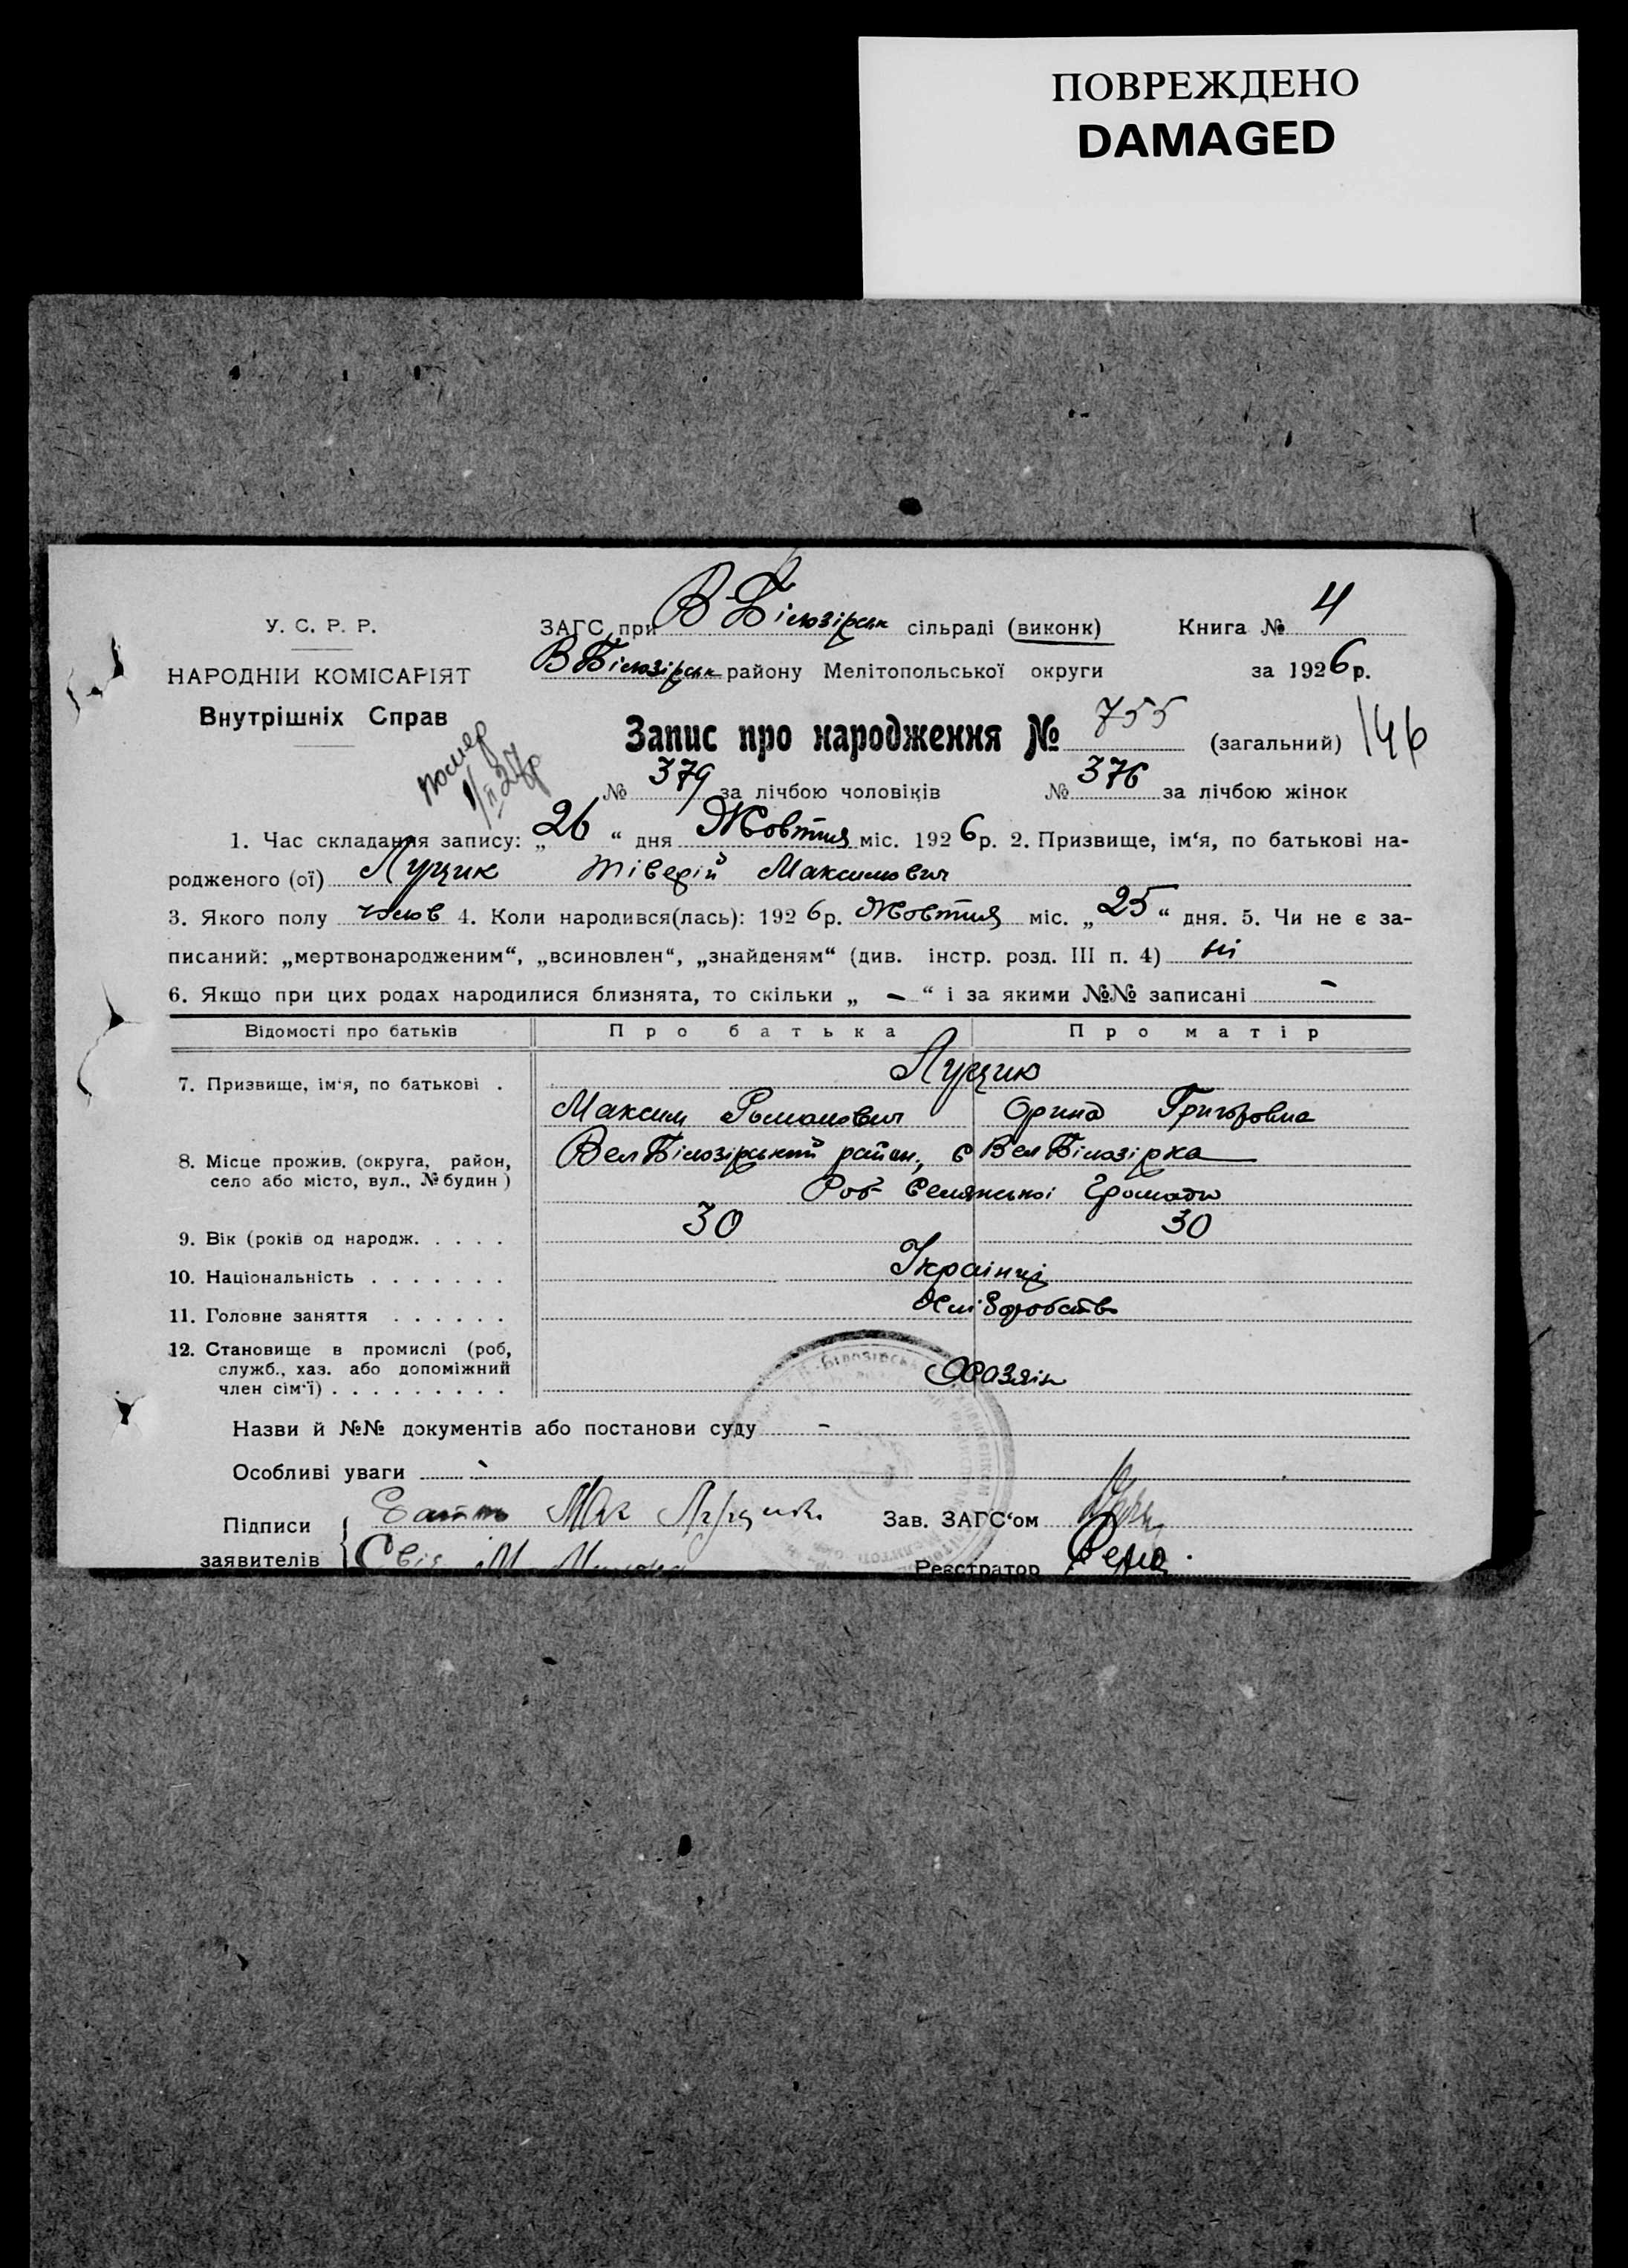 ПОВРЕЖДЕНО
DAMAGED
У. С. Р. Р.
ЗАГС при В-Білозірськ сільраді (виконк) Книга № 4
НАРОДНІЙ КОМІСАРІЯТ
В Білозірськ району Мелітопольської округи за 1926 р.
Внутрішніх Справ
Запис про народження № 755 (загальний) 146
помер
1/II 27р
№ 379 за лічбою чоловіків № 376 за лічбою жінок
1. Час складання запису: „26“ дня Жовтня міс. 1926 р. 2. Призвище, ім‘я, по батькові на-
родженого (ої) Лущик Тіверій Максимович
3. Якого полу чолов 4. Коли народився(лась): 1926 р. Жовтня міс. „25“ дня. 5. Чи не є за-
писаний: „мертвонародженим“, „всиновлен“, „знайденям“ (див. інстр. розд. III п. 4) ні
6. Якщо при цих родах народилися близнята, то скільки „ - “ і за якими №№ записані -
Відомості про батьків Про батька Про матір
7. Призвище, ім‘я, по батькові . Лущик
Максим Романович Орина Григоровна
8. Місце прожив. (округа, район, село або місто, вул., № будин) Вел Білозірський район, с Вел Білозірка
Роб Селянської Громади
9. Вік (років од народж. . . . . 30 30
10. Національність . . . . . . . Українці
11. Головне заняття . . . . . . Хліборобств
12. Становище в промислі (роб, служб., хаз. або допоміжний член сім‘ї) . . . . . . . . . Хазяін
Назви й №№ документів або постанови суду -
Особливі уваги -
Підписи заявителів Мак Лущик Зав. ЗАГС‘ом
Свід М Реєстратор